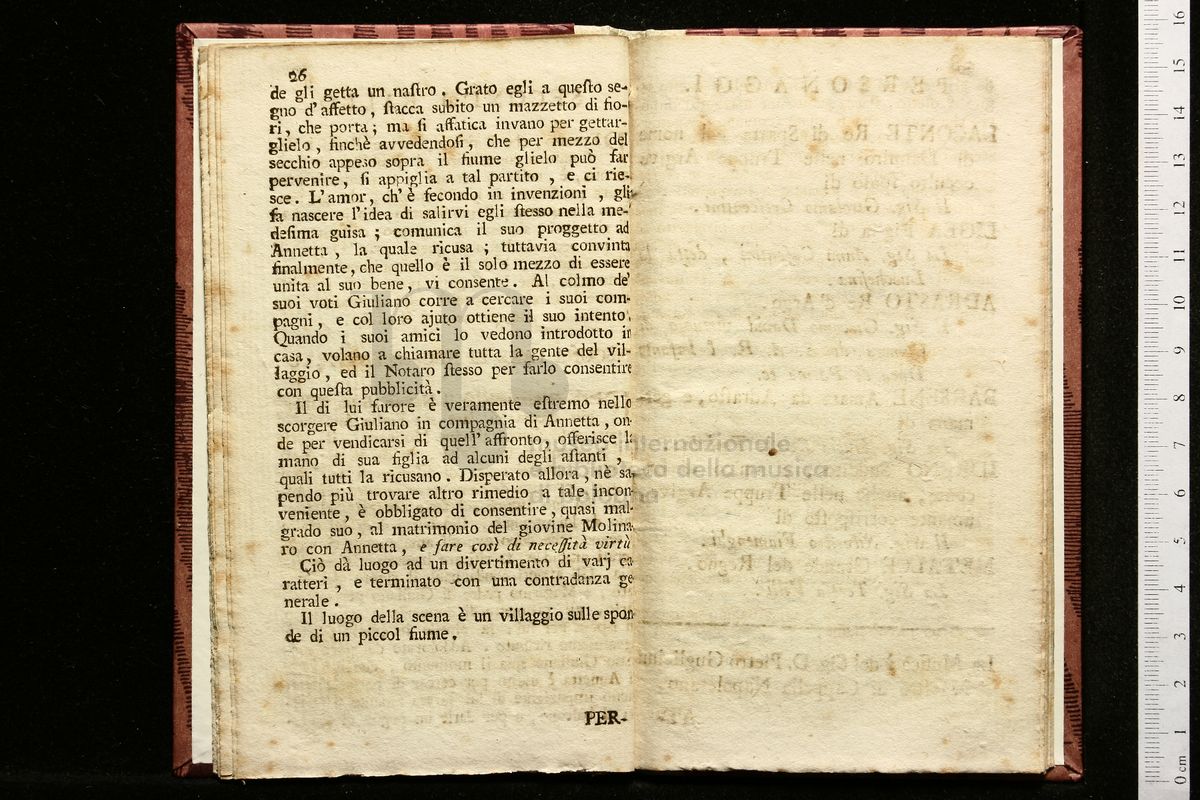 26
de gli getta un naſtro . Grato egli a queſto se-
gno d' affetto , ſtacca subito un mazzetto di fio-
ri, che porta ; ma ſi affatica invano per gettar-
glielo , finchè avvedendoſi , che per mezzo del
secchio appeso sopra il fiume glielo può far
pervenire, ſi appiglia a tal partito , e ci rie-
sce. L'amor, ch' è fecondo in invenzioni , gli
fa nascere l'idea di salirvi egli ſtesso nella me-
deſima guiſa ; comunica il suo proggetto ad
Annetta , la quale ricusa ; tuttavia convinta
finalmente, che quello è il solo mezzo di essere
unita al suo bene, vi consente. Al colmo de'
suoi voti Giuliano corre a cercare i suoi com-
pagni , e col loro ajuto ottiene il suo intento.
Quando i suoi amici lo vedono introdotto in
casa, volano a chiamare tutta la gente del vil-
laggio , ed il Notaro ſtesso per farlo consentire
con queſta pubblicità .
Il di lui furore è veramente eſtremo nello
scorgere Giuliano in compagnia di Annetta , on-
de per vendicarsi di quell' affronto, offerisce la
mano di sua figlia ad alcuni degli aſtanti ,
quali tutti la ricusano . Disperato allora , nè sa
pendo più trovare altro rimedio a tale incon-
veniente , è obbligato di consentire , quasi mal-
grado suo , al matrimonio del giovine Molina-
ro con Annetta , e fare così di neceſſità virtù
Ciò dà luogo ad un divertimento di varj ca
ratteri , e terminato con una contradanza ge
nerale .
Il luogo della scena è un villaggio sulle spon
de di un piccol fiume .
PER-
internazionale
della musica